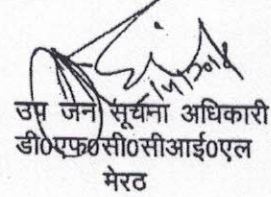 उप जन सूचना अधिकारी
डी०एफ०सी०सीआई०एल
मेरठ